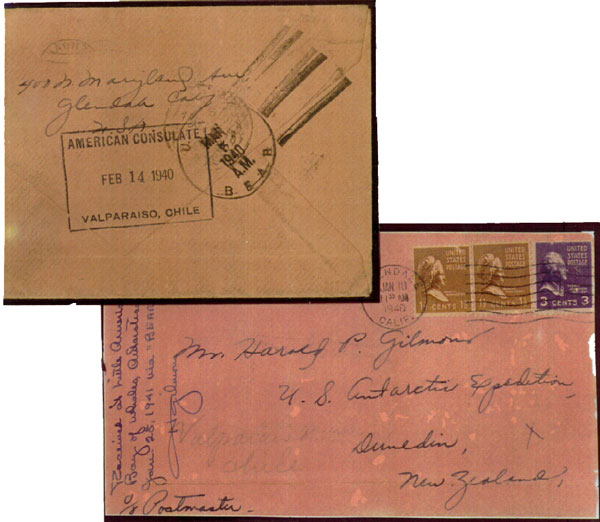 400 N. Maryland Ave
Glendale Calif
U.S.A.
AMERICAN CONSULATE
FEB 14 1940
VALPARAISO, CHILE
U.
MAR
1940
A.M.
BEAR
JAN 10
AM
1940
CALIF.
UNITED
STATES
POSTAGE
CENTS
UNITED
STATES
POSTAGE
CENTS
UNITED
STATES
POSTAGE
3 CENTS 3
Mr. Harold P. Gilmour
U. S. Antarctic Expedition,
Dunedin,
New Zealand,
Valparaiso
Chile
c/o Postmaster.
Received at Little America
Bay of Whales, Antarctica
Jan 28, 1941 via "BEAR"
HGilmour